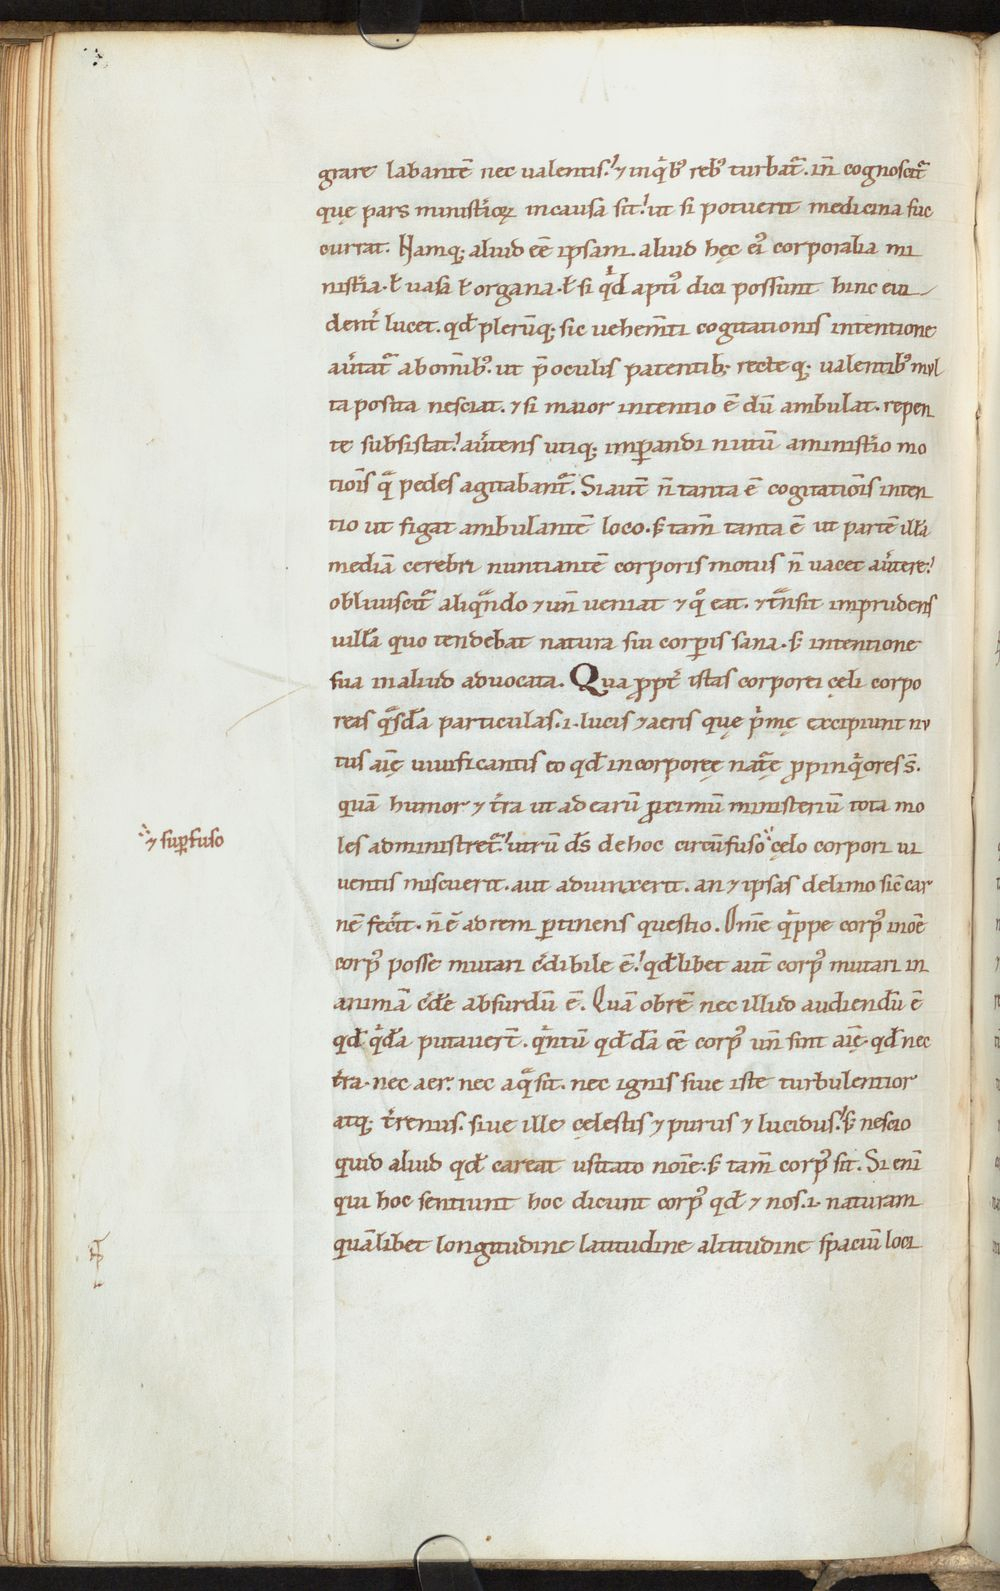 grare labantē nec ualentis. ⁊ in qͥbꝰ rebꝰ turbat᷑. in̄ cognoscit᷑
quę pars ministͥoꝝ in causa sit. ut si potuerit medicina suc
currat. Namq; aliud ēē ipsam. aliud hęc eiꝰ corporalia mi
nistͥia. ł uasa ł organa. ł si qͥd aptiꝰ dici possunt hinc eui
dent̄ lucet. qđ plerūq; sic uehem̄ti cogitationis intentione
au̓tat᷑ ab om̄ibꝰ. ut p̄ oculis patentib; recte q; ualentibꝰ mul
ta posita nesciat. ⁊ si maior intentio ē dū ambulat. repen
te subsistat. au̓tens utiq; imꝑandi nutū a ministͥo mo
tiōis qͣ pedes agitabant᷑. Si aut̄ n̄ tanta ē cogitatiōis inten
tio ut figat ambulantē loco. ꝫ tam̄ tanta ē ut partē illā
mediā cerebri nuntiantē corporis motus n̄ uacet au̓tere.
obliuiscit᷑ aliqͣndo ⁊ un̄ ueniat ⁊ qͦ eat. ⁊ tͣnsit imprudens
uillā quo tendebat natura sui corꝑis sana. ꝫ intentione
sua in aliud aduocata. Qua ꝓpt̄ istas corporei cęli corpo
reas qͣsdā particulas. .i. lucis ⁊ aeris quę pͥmę excipiunt nu
tus aīę uiuificantis eo qđ incorporeę nat᷑ę ꝓpinqͥores s̄.
quā humor ⁊ t̓ra ut ad earū ꝓximū ministeriū tota mo
les administret᷑. utrū d̄s de hoc circūfuso cęlo corpori ui
⁊ suꝑfuso
uentis miscuerit. aut adiunxerit. an ⁊ ipsas de limo sic̄ car
nē fec̓it. n̄ ē ad rem ꝑtinens questio. Om̄e qͥppe corpꝰ in oē
corpꝰ posse mutari c̓dibile ē. qđlibet aut̄ corpꝰ mutari in
animā c̓dēe absurdū ē. Quā obrē nec illud audiendū ē
qđ qͥdā putauer̄t. qͥntū qđdā ēē corpꝰ un̄ sint aīę. qđ nec
t̓ra. nec aer. nec aqͣ sit. nec ignis siue iste turbulentior
atq; t̓renus. siue ille cęlestis ⁊ purus ⁊ lucidus. ꝫ nescio
quid aliud qđ careat usitato noīe. ꝫ tam̄ corpꝰ sit. Si eni
qui hoc sentiunt hoc dicunt corpꝰ qđ ⁊ nos. .i. naturam
quālibet longitudine latitudine altitudine spaciū loci